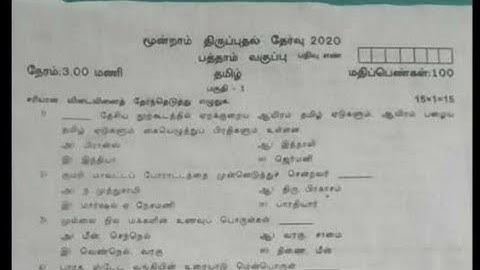 மூன்றாம் திருப்புதல் தேர்வு 2020
பத்தாம் வகுப்பு பதிவு எண்
நேரம்:3.00 மணி தமிழ் மதிப்பெண்கள்:100
பகுதி - I
சரியான விடையினைத் தேர்ந்தெடுத்து எழுதுக. 15×1=15
1) ______ தேசிய நூற்கூடத்தில் ஏறக்குறைய ஆயிரம் தமிழ் ஏடுகளும், ஆயிரம் பழைய
தமிழ் ஏடுகளும் கையெழுத்துப் பிரதிகளும் உள்ளன.
அ) பிரான்ஸ் ஆ) இத்தாலி
இ) இந்தியா ஈ) ஜெர்மனி
2) குமரி மாவட்டப் போராட்டத்தை முன்னெடுத்துச் சென்றவர் ______
அ) ந. முத்துசாமி ஆ) திரு. பிரகாசம்
இ) மார்ஷல் ஏ. நேசமணி ஈ) பாரதியார்
3) முல்லை நில மக்களின் உணவுப் பொருள்கள் ______
அ) மீன், செந்நெல் ஆ) வரகு, சாமை
இ) வெண்நெல், வரகு ஈ) தினை, மீன்
4) பாரத ஸ்டேட் வங்கியின் உரையாடு மென்பொருள்